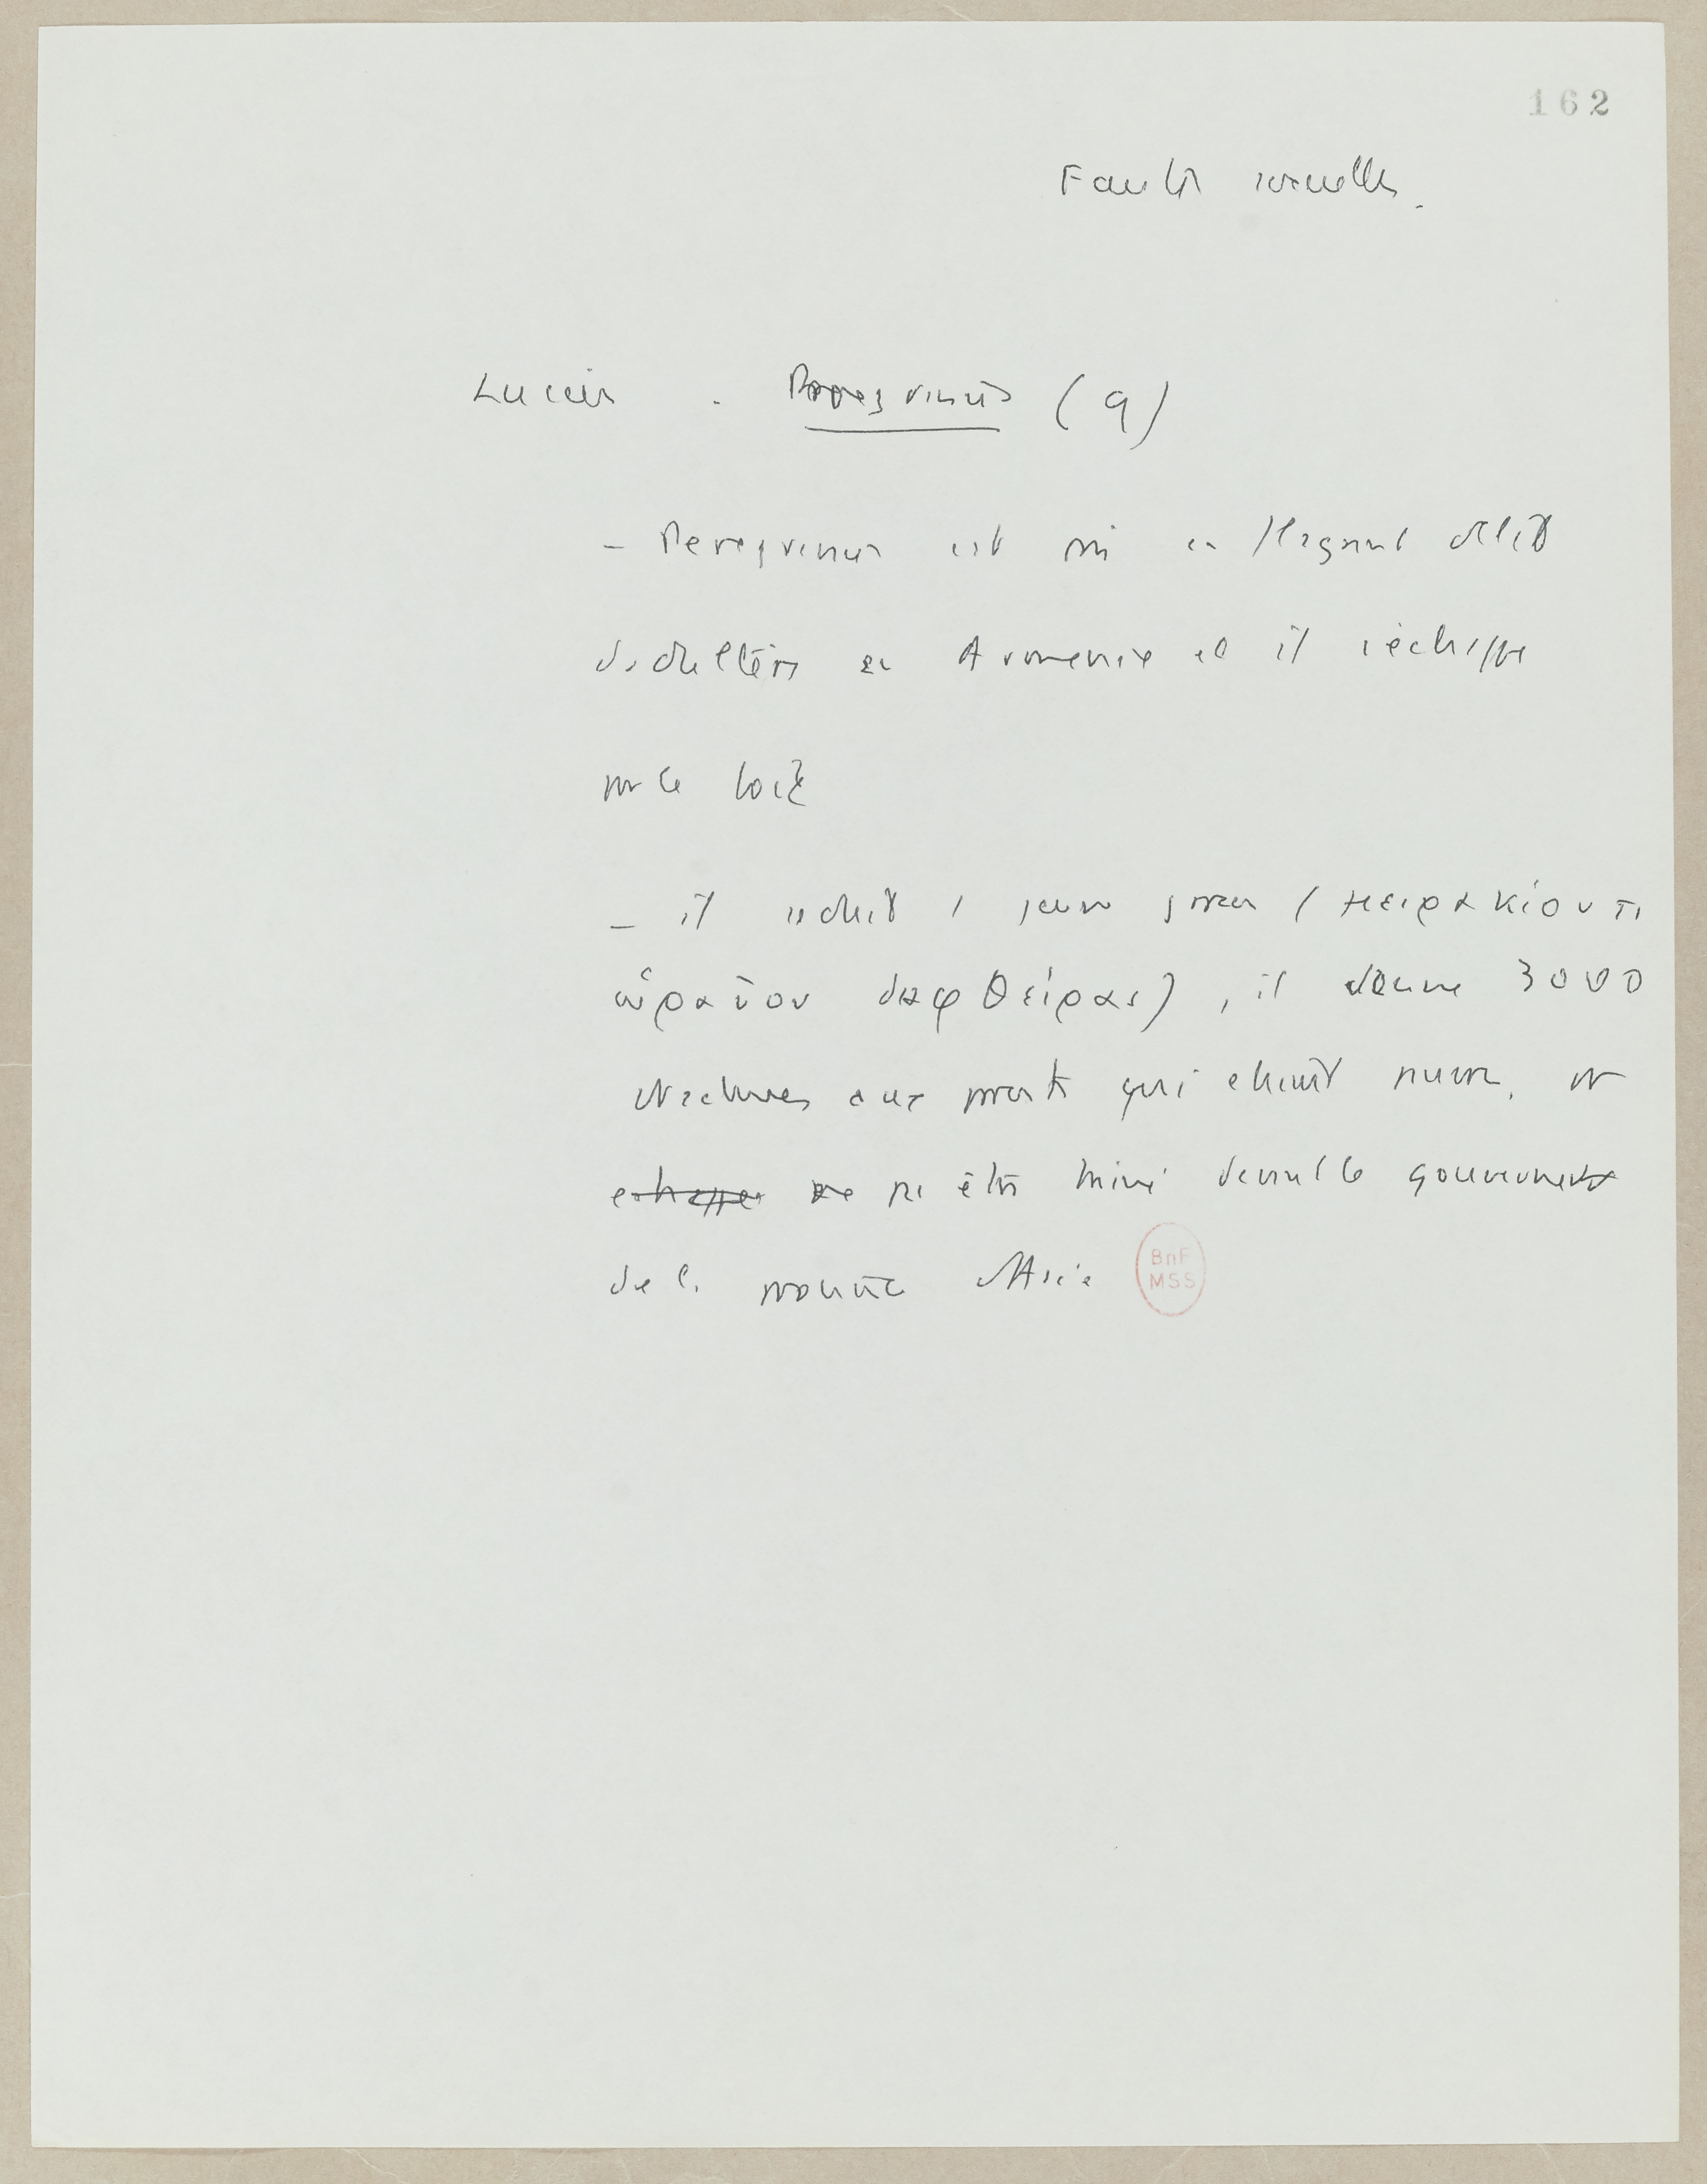 162
Fautes sexuelles.
Lucien . Peregrinus (9)
– Peregrinus est pris en flagrant délit
d'adultère en Armenie et il s'échappe
par le toit
– il séduit 1 jeune garçon (μειράκιόν τι
ὡραῖον διαφθείρας), il donne 3000
drachmes aux parents qui étaient pauvres, pr
echapper de ne pas être traîné devant le gouverneur
de la province d'Asie
BnF
MSS